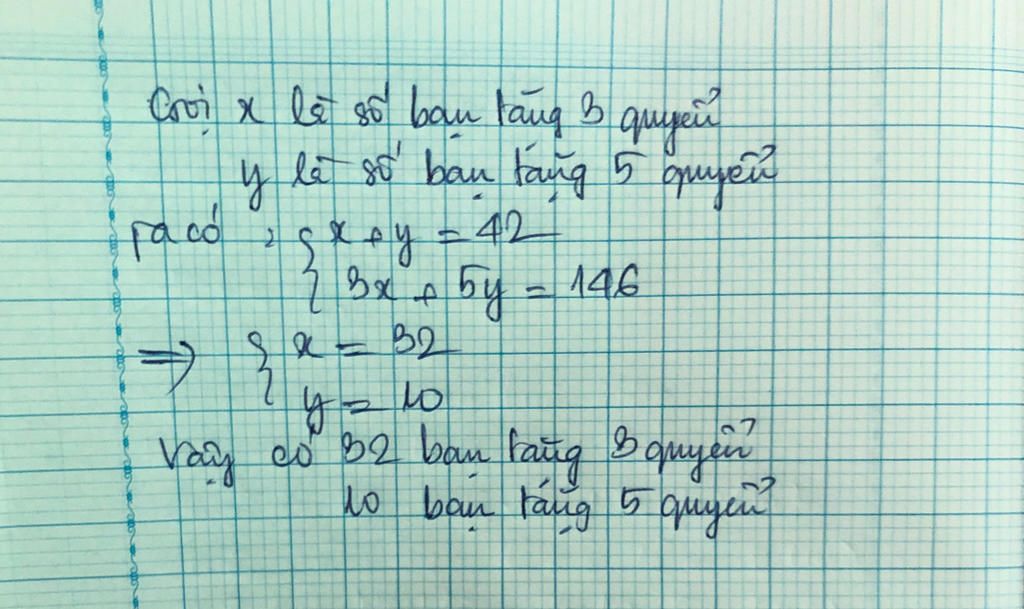 Gọi x là số bạn tặng 3 quyển
y là số bạn tặng 5 quyển
Ta có : { x + y = 42
3x + 5y = 146
=> { x = 32
y = 10
Vậy có 32 bạn tặng 3 quyển
10 bạn tặng 5 quyển